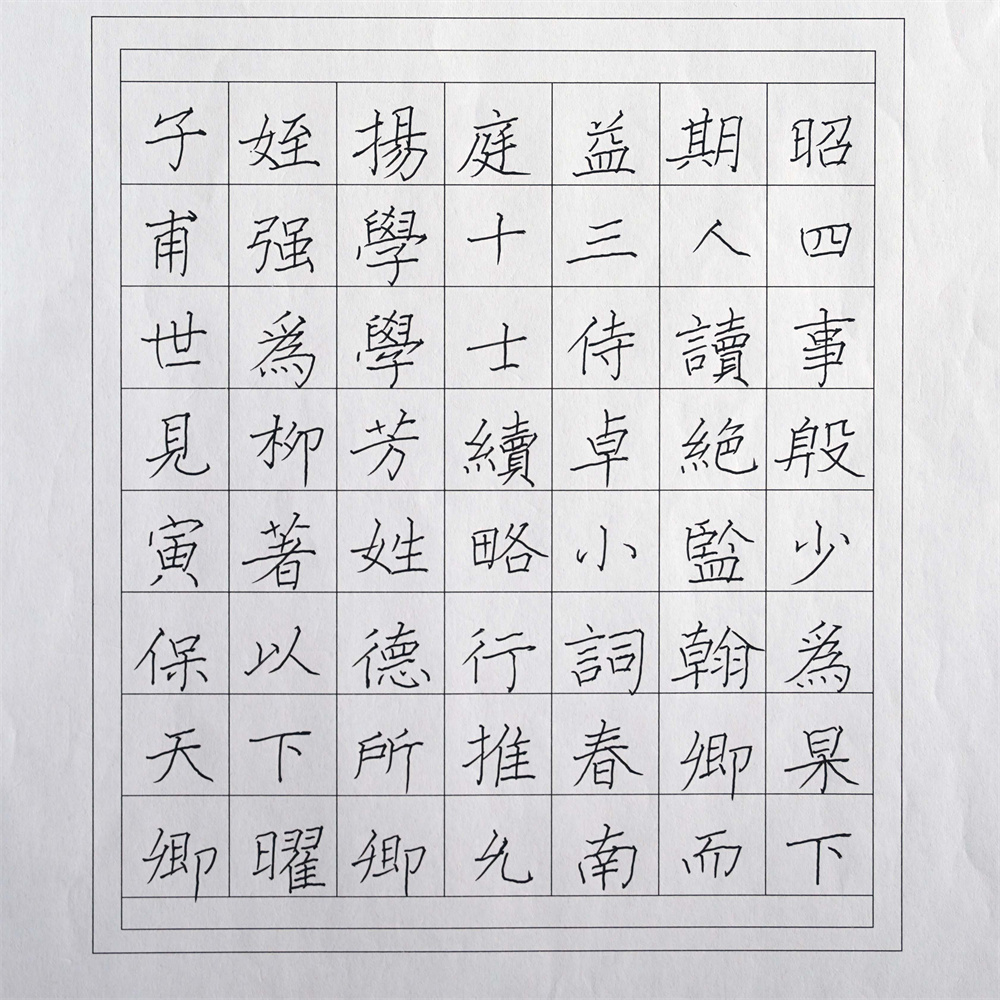 子姪揚庭益期昭
甫强學十三人四
世爲學士侍讀事
見柳芳續卓絶殷
寅著姓略小監少
保以德行詞翰爲
天下所推春卿杲
卿曜卿允南而下